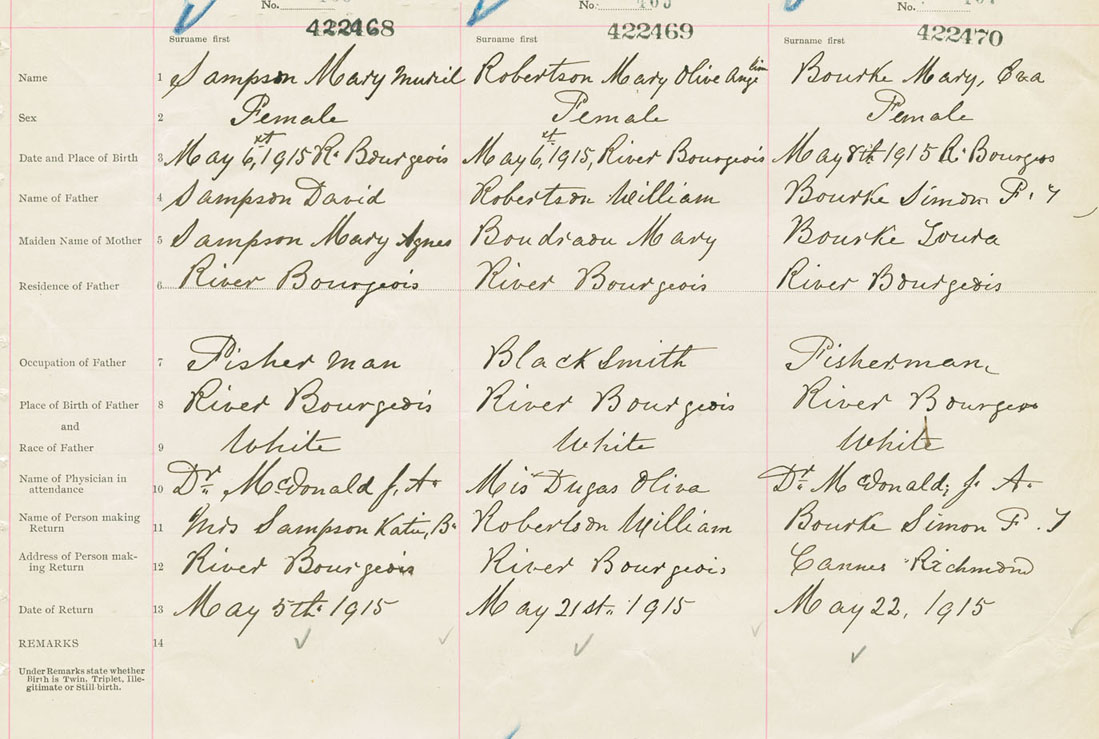 No. No. No.
422468 422469 422470
Surname first Surname first Surname first
Name 1 Sampson Mary Muriel Robertson Mary Olive Angeline Bourke Mary, Eva
Sex 2 Female Female Female
Date and Place of Birth 3 May 6, 1915 R. Bourgeois May 6, 1915, River Bourgeois May 8th 1915 R. Bourgeois
Name of Father 4 Sampson David Robertson William Bourke Simon F.
Maiden Name of Mother 5 Sampson Mary Agnes Boudraou Mary Bourke Loura
Residence of Father 6 River Bourgeois River Bourgeois River Bourgeois
Occupation of Father 7 Fisher man Black Smith Fisherman
Place of Birth of Father 8 River Bourgeois River Bourgeois River Bourgeois
and
Race of Father 9 White White White
Name of Physician in
attendance 10 Dr. McDonald J. A. Mis Dugas Oliva Dr. McDonald; J. A.
Name of Person making
Return 11 Mrs Sampson Katie, B. Robertson William Bourke Simon F.
Address of Person mak-
ing Return 12 River Bourgeois River Bourgeois Cannes Richmond
Date of Return 13 May 5th 1915 May 21st. 1915 May 22, 1915
REMARKS 14
Under Remarks state whether
Birth is Twin, Triplet, Ille-
gitimate or Still birth.